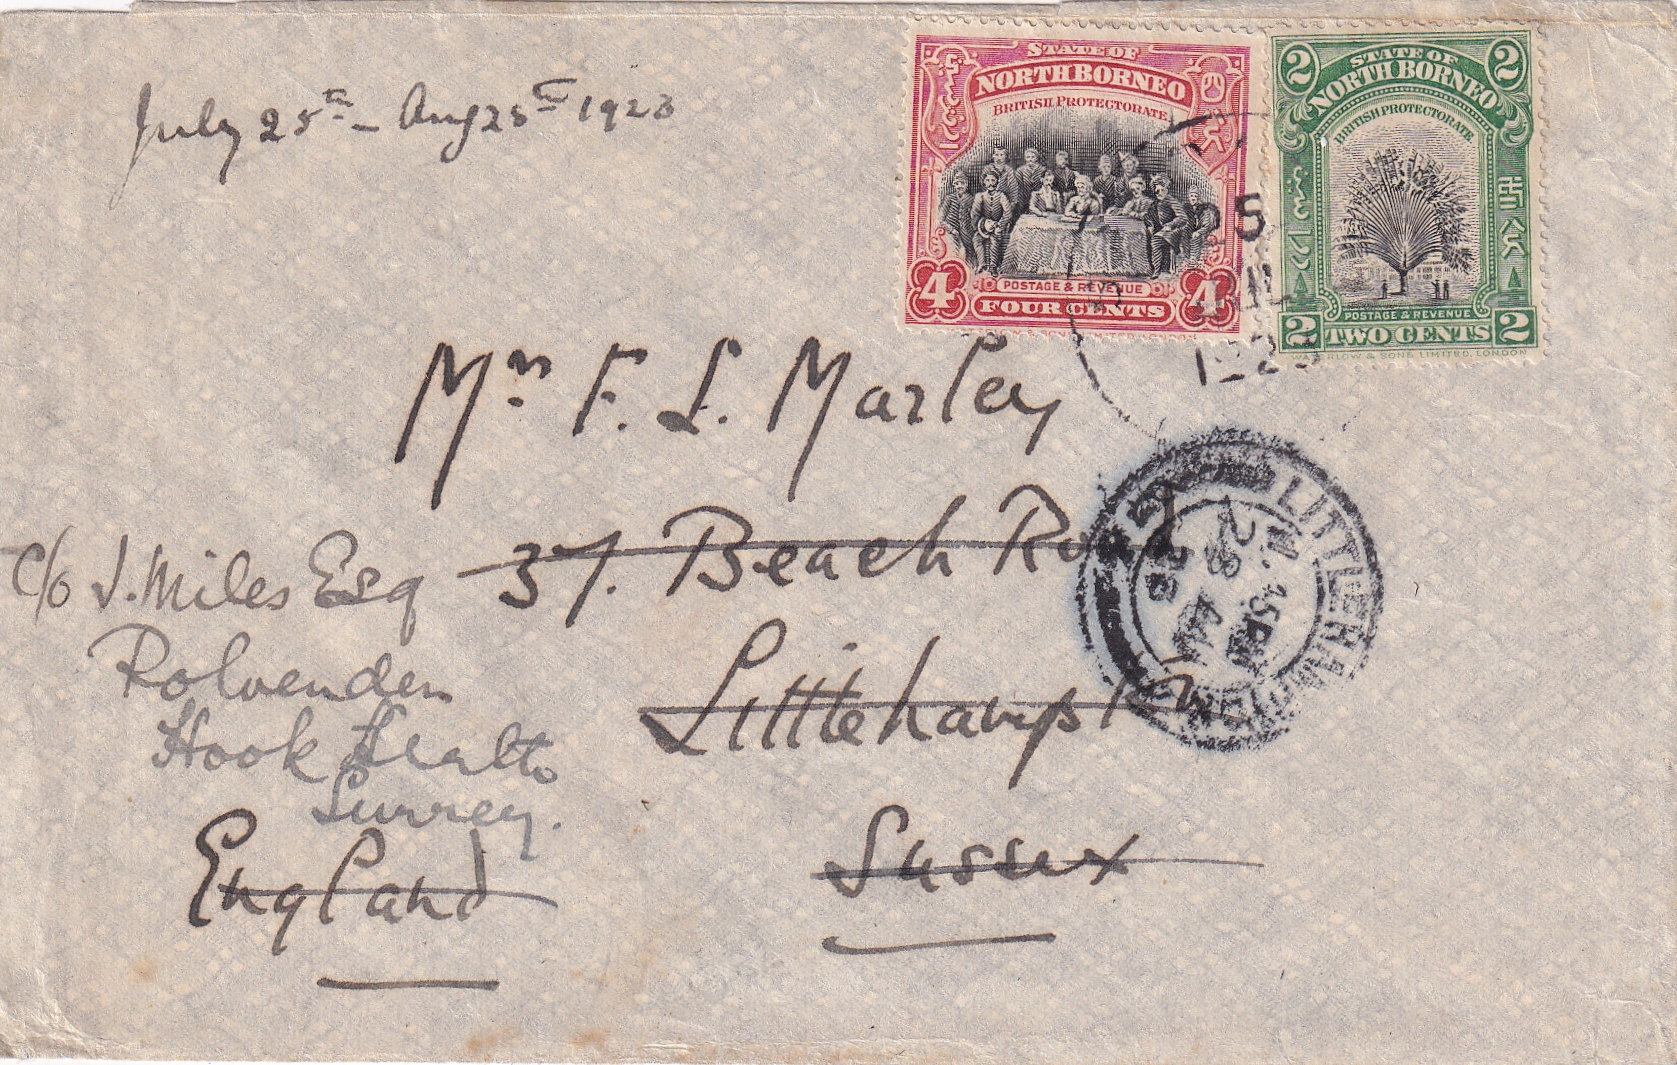 July 25th - Aug 25th 1923
STATE OF
NORTH BORNEO
BRITISH PROTECTORATE
POSTAGE & REVENUE
4 FOUR CENTS 4
2 STATE OF 2
NORTH BORNEO
BRITISH PROTECTORATE
POSTAGE & REVENUE
2 TWO CENTS 2
WATERLOW & SONS LIMITED, LONDON
25
JUL
1923
Mrs F. L. Marley
37. Beach Road
Littlehampton
Sussex
England
c/o J. Miles Esq
Rolvenden
Hook Heath
Surrey.
LITTLEHAMPTON